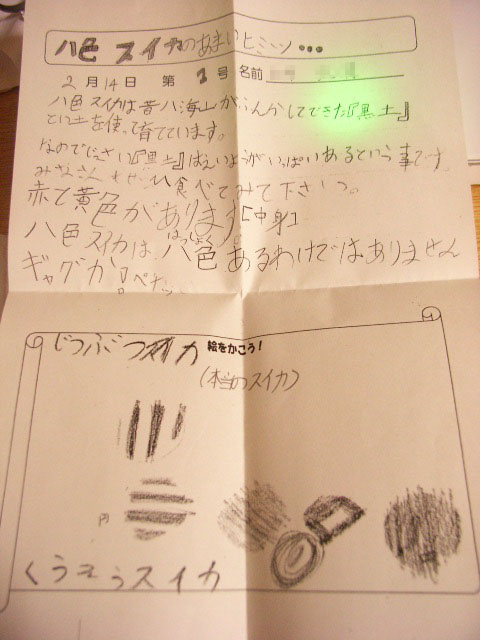 八色スイカのあまいヒミツ…
2月14日 第1号 名前
八色スイカは昔八海山がふんかしてできた『黒土』
という土を使って育てています。
なのでじっさい『黒土』はえいようがいっぱいあるという事です。
みなさんもぜひ食べてみて下さいっ。
赤と黄色があります[中身]
八色スイカは、八色あるわけではありません
はっしょく
ギャグか!
じつぶつスイカ 絵をかこう!
(本当のスイカ)
円
くうそうスイカ